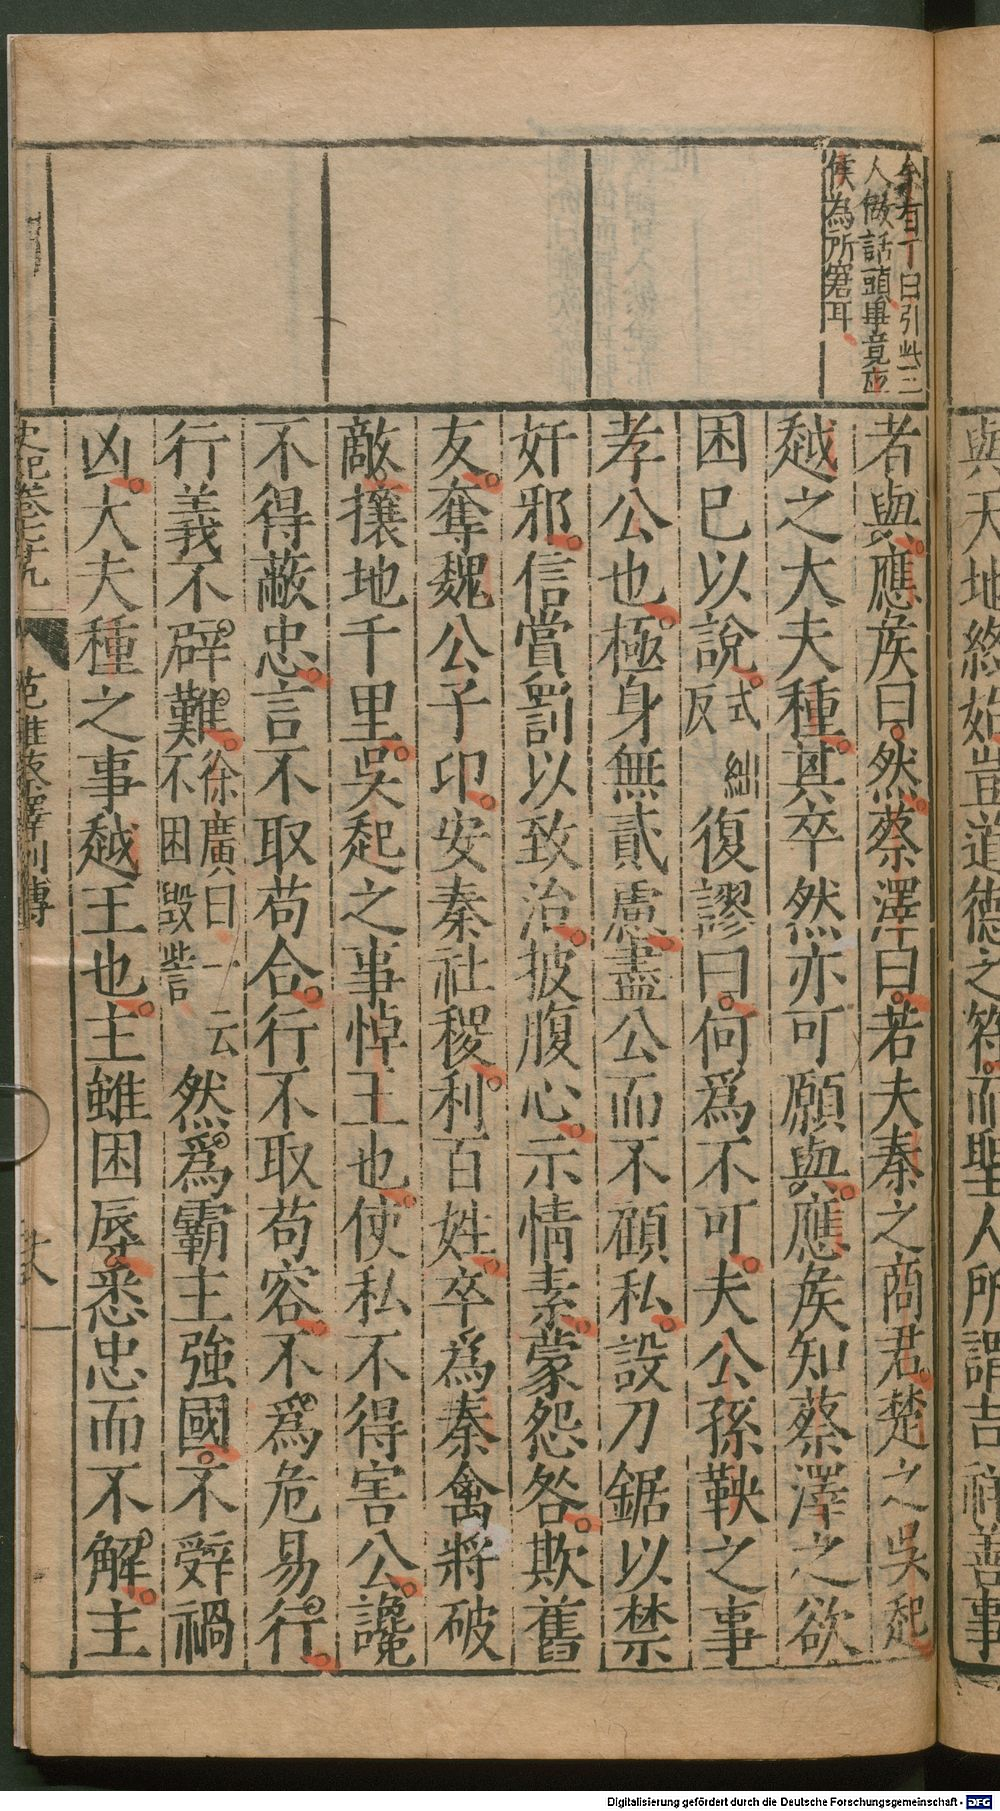 余有丁曰引此三
人做話頭畢竟應
侯為所窘耳
者與應侯曰然蔡澤曰若夫秦之商君楚之吳起
越之大夫種其卒然亦可願與應侯知蔡澤之欲
困已以說式絀反復謬曰何爲不可夫公孫鞅之事
孝公也極身無貳慮盡公而不顧私設刀鋸以禁
奸邪信賞罰以致治披腹心示情素蒙怨咎欺舊
友奪魏公子卬安秦社稷利百姓卒爲秦禽將破
敵攘地千里吳起之事悼王也使私不得害公讒
不得蔽忠言不取苟合行不取苟容不爲危易行
行義不辟難徐廣曰一云不困毀訾然爲霸主強國不辭禍
凶大夫種之事越王也主雖困辱悉忠而不解主
史記卷七十九
范雎蔡澤列傳
與天地終始豈道德之符而聖人所謂吉祥善事
Digitalisierung gefördert durch die Deutsche Forschungsgemeinschaft - DFG